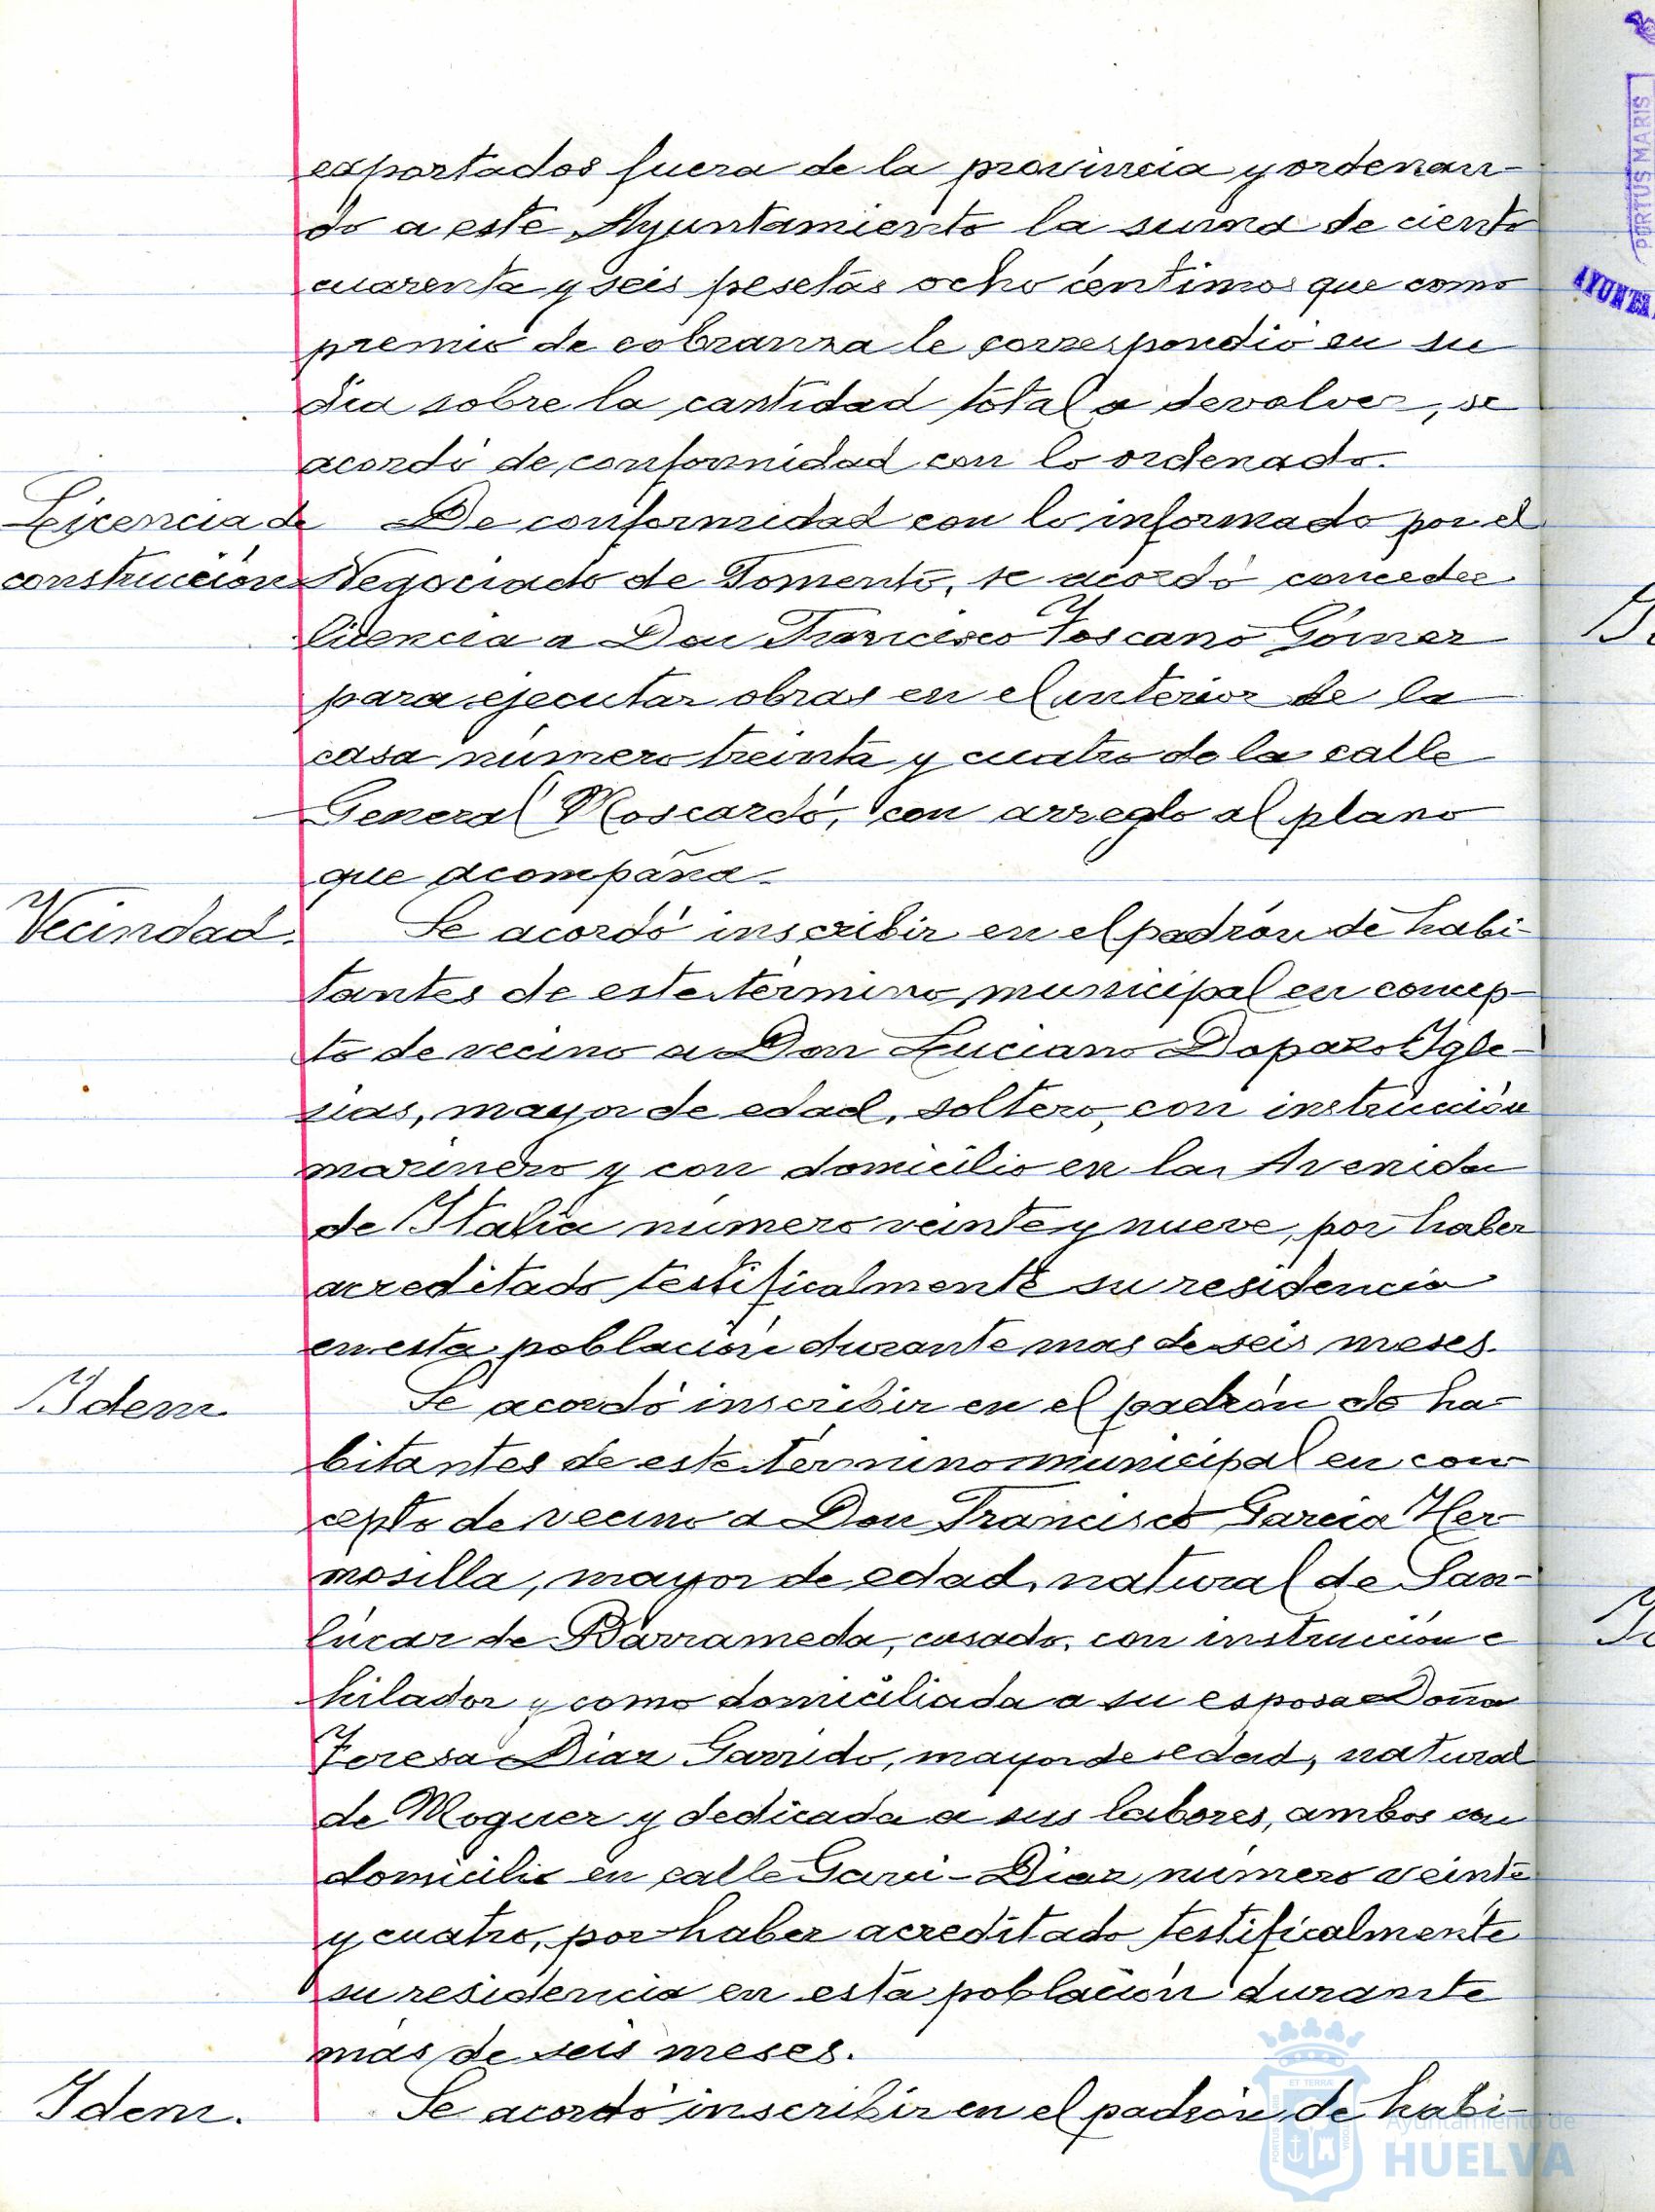 exportados fuera de la provincia y ordenan-
do a este Ayuntamiento la suma de ciento
cuarenta y seis pesetas ocho centimos que como
premio de cobranza le correspondio en su
dia sobre la cantidad total a devolver, se
acordó de conformidad con lo ordenado.
Licencia de De conformidad con lo informado por el
construcción Negociado de Fomento, se acordó conceder
licencia a Don Francisco Toscano Gómez
para ejecutar obras en el interior de la
casa número treinta y cuatro de la calle
General Moscardó, con arreglo al plano
que acompaña.
Vecindad. Se acordó inscribir en el padrón de habi-
tantes de este término municipal en concep-
to de vecino a Don Luciano Dopazo Igle-
sias, mayor de edad, soltero, con instrucción
marinero y con domicilio en la Avenida
de Italia número veinte y nueve, por haber
acreditado testificalmente su residencia
en esta población durante mas de seis meses.
Idem Se acordó inscribir en el padrón de ha-
bitantes de este término municipal en con-
cepto de vecino a Don Francisco Garcia Her-
mosilla, mayor de edad, natural de San-
lúcar de Barrameda, casado, con instrucción e
hilador y como domiciliada a su esposa Doña
Teresa Diaz Garrido, mayor de edad, natural
de Moguer y dedicada a sus labores, ambos con
domicilio en calle Garci-Diaz número veinte
y cuatro, por haber acreditado testificalmente
su residencia en esta población durante
más de seis meses.
Idem. Se acordó inscribir en el padrón de habi-
PORTUS MARIS
AYUNTA
Ayuntamiento de
HUELVA